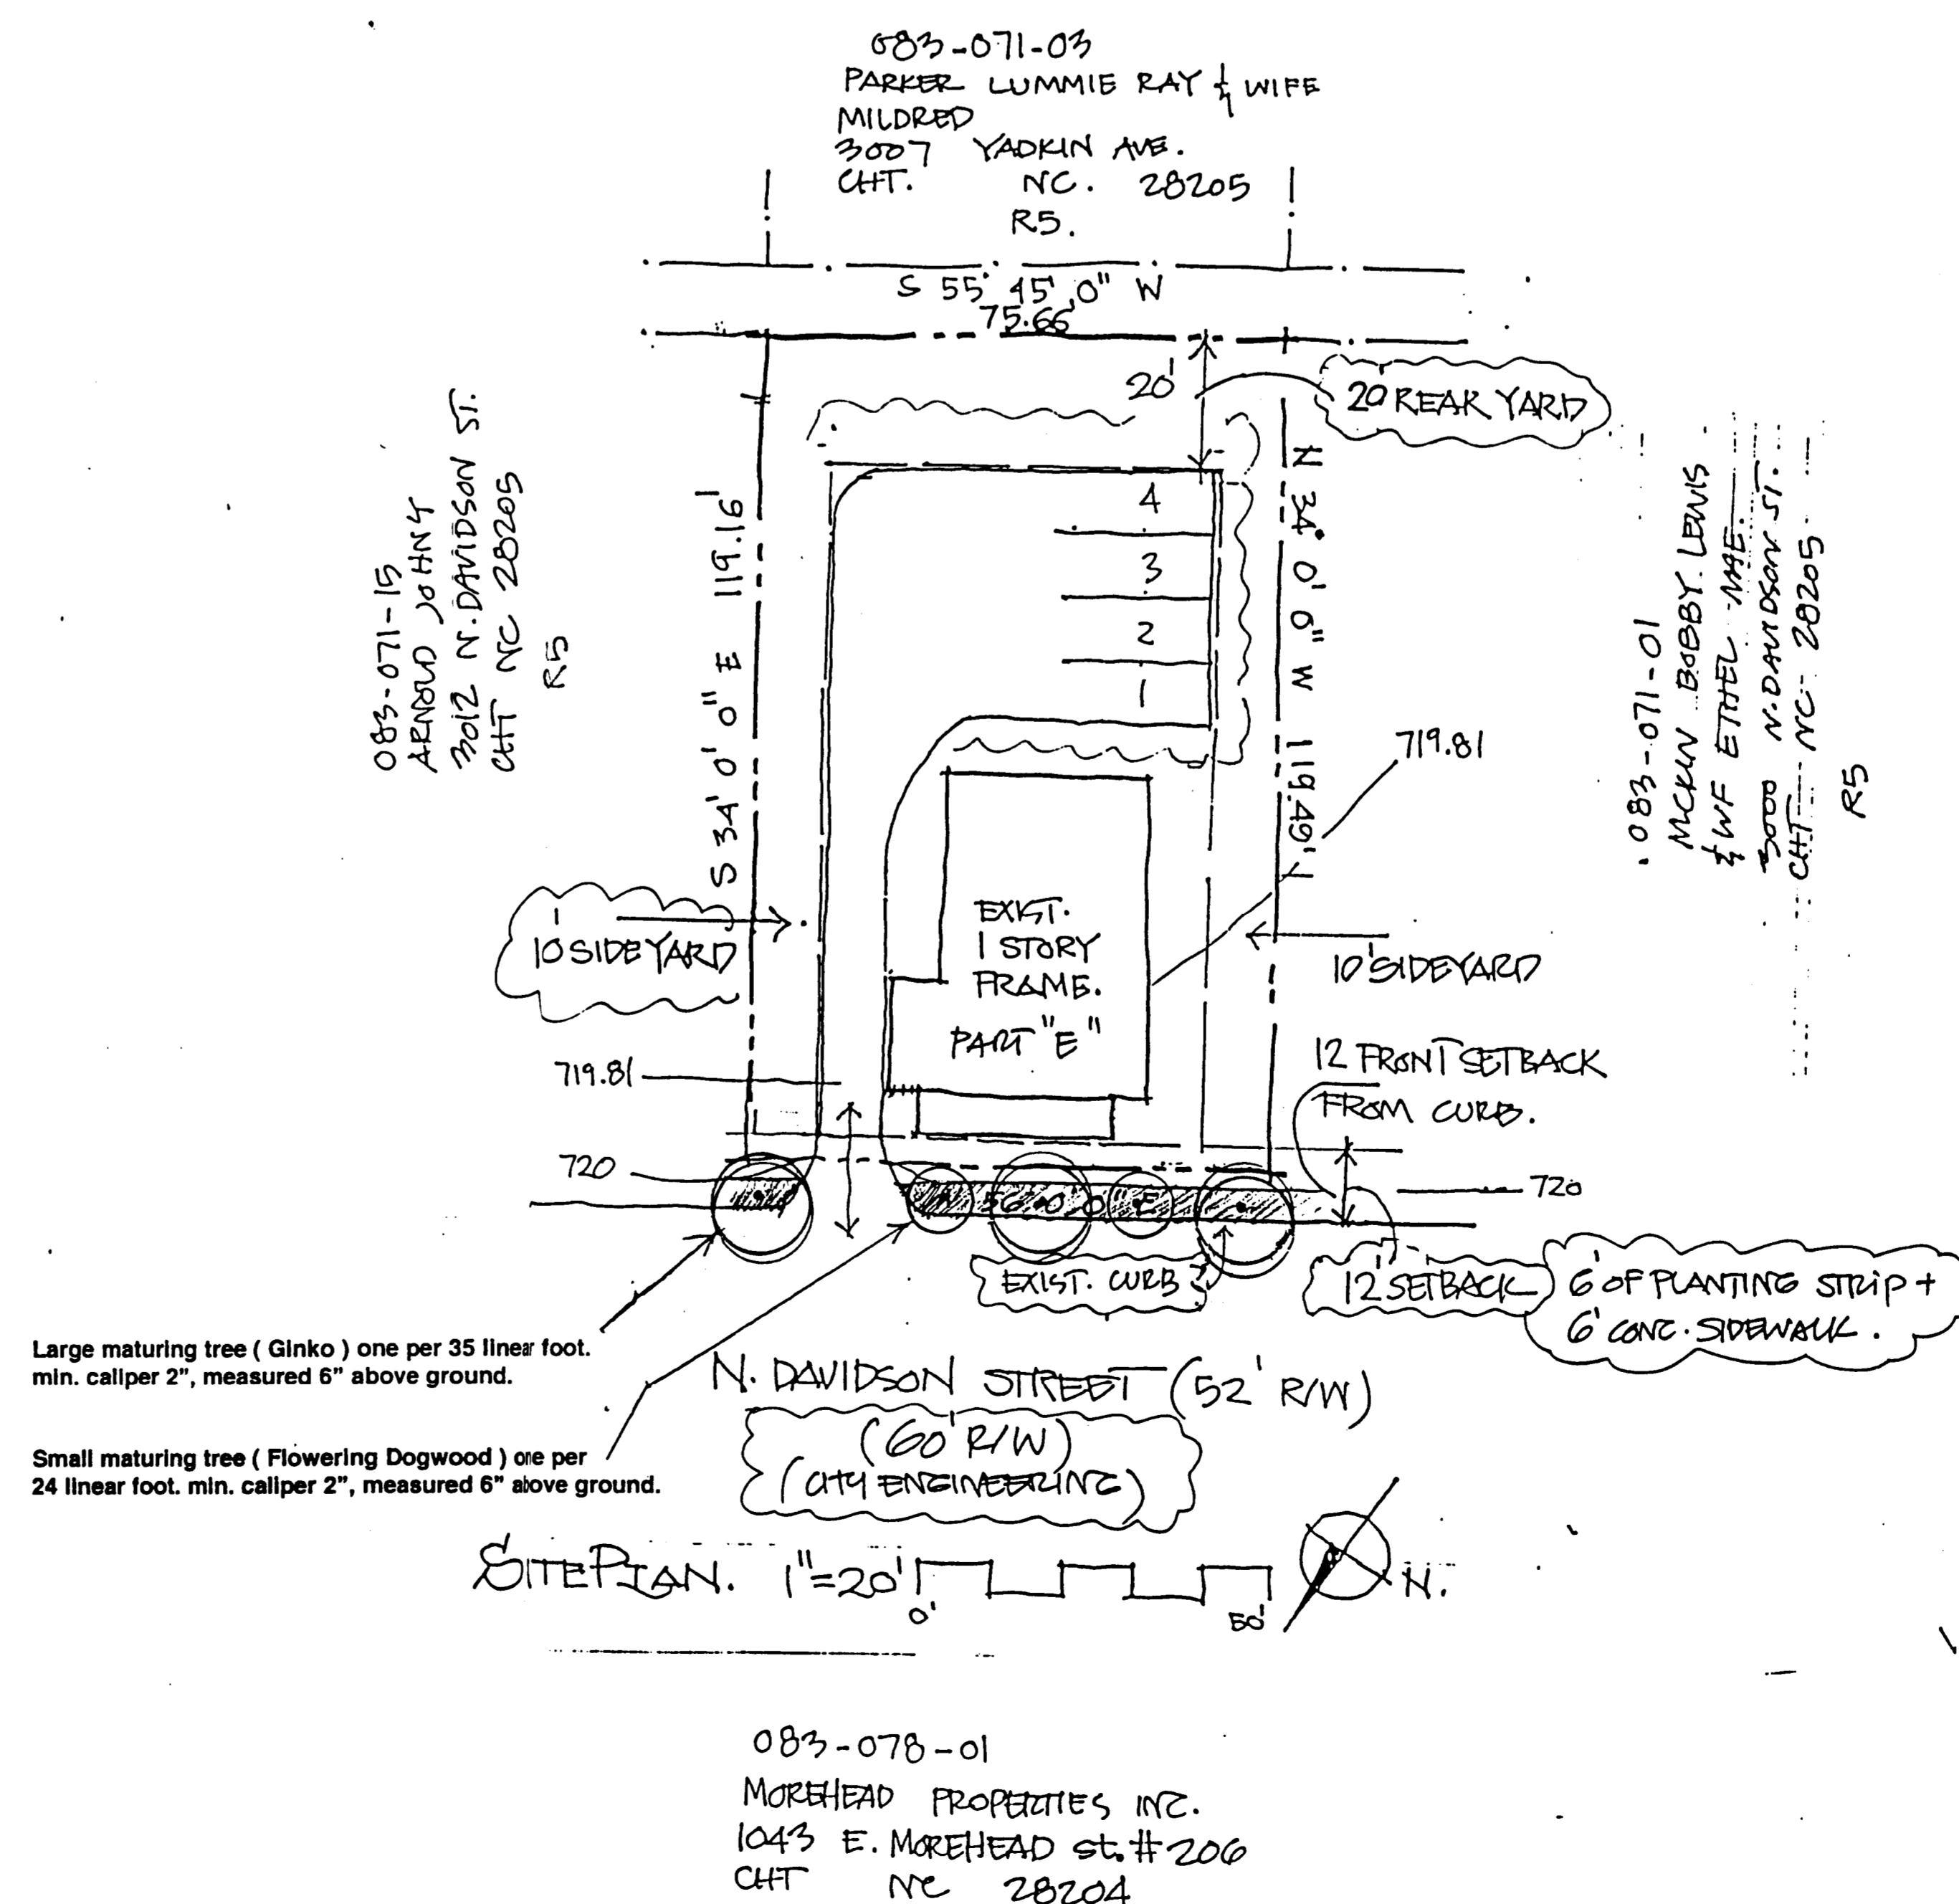 083-071-03
PARKER LUMMIE RAY & WIFE
MILDRED
3007 YADKIN AVE.
CHT. NC. 28205
R5.
S 55° 45' 0" W
75.66'
20'
20' REAR YARD
083-071-15
ARNOLD JOHN Y
3012 N. DAVIDSON ST.
CHT NC 28205
R5
S 34° 0' 0" E 119.16'
4
3
2
1
N 34° 0' 0" W 119.49'
719.81
.083-071-01
MCKUN BOBBY LEWIS
& WF ETHEL MAE.
3000 N. DAVIDSON ST.
CHT NC 28205
R5
10' SIDEYARD
EXIST.
1 STORY
FRAME.
PART "E"
10' SIDEYARD
12 FRONT SETBACK
FROM CURB.
719.81
720
720
N 56° 0' 0" E
EXIST. CURB
12' SETBACK
6' OF PLANTING STRIP +
6' CONC. SIDEWALK.
Large maturing tree ( Ginko ) one per 35 linear foot.
min. caliper 2", measured 6" above ground.
N. DAVIDSON STREET (52' R/W)
(60' R/W)
(CITY ENGINEERING)
Small maturing tree ( Flowering Dogwood ) one per
24 linear foot. min. caliper 2", measured 6" above ground.
SITE PLAN. 1"=20'
0'
50'
N.
083-078-01
MOREHEAD PROPERTIES INC.
1043 E. MOREHEAD St. # 206
CHT NC 28204